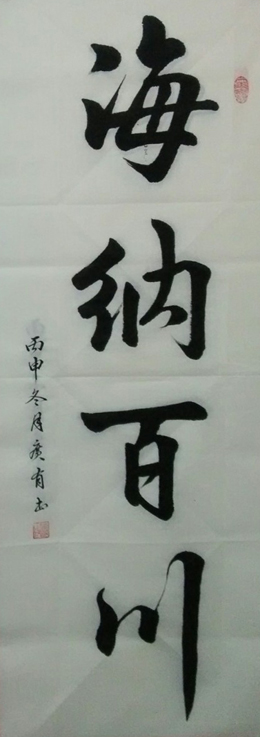 海纳百川
丙申冬月广有书